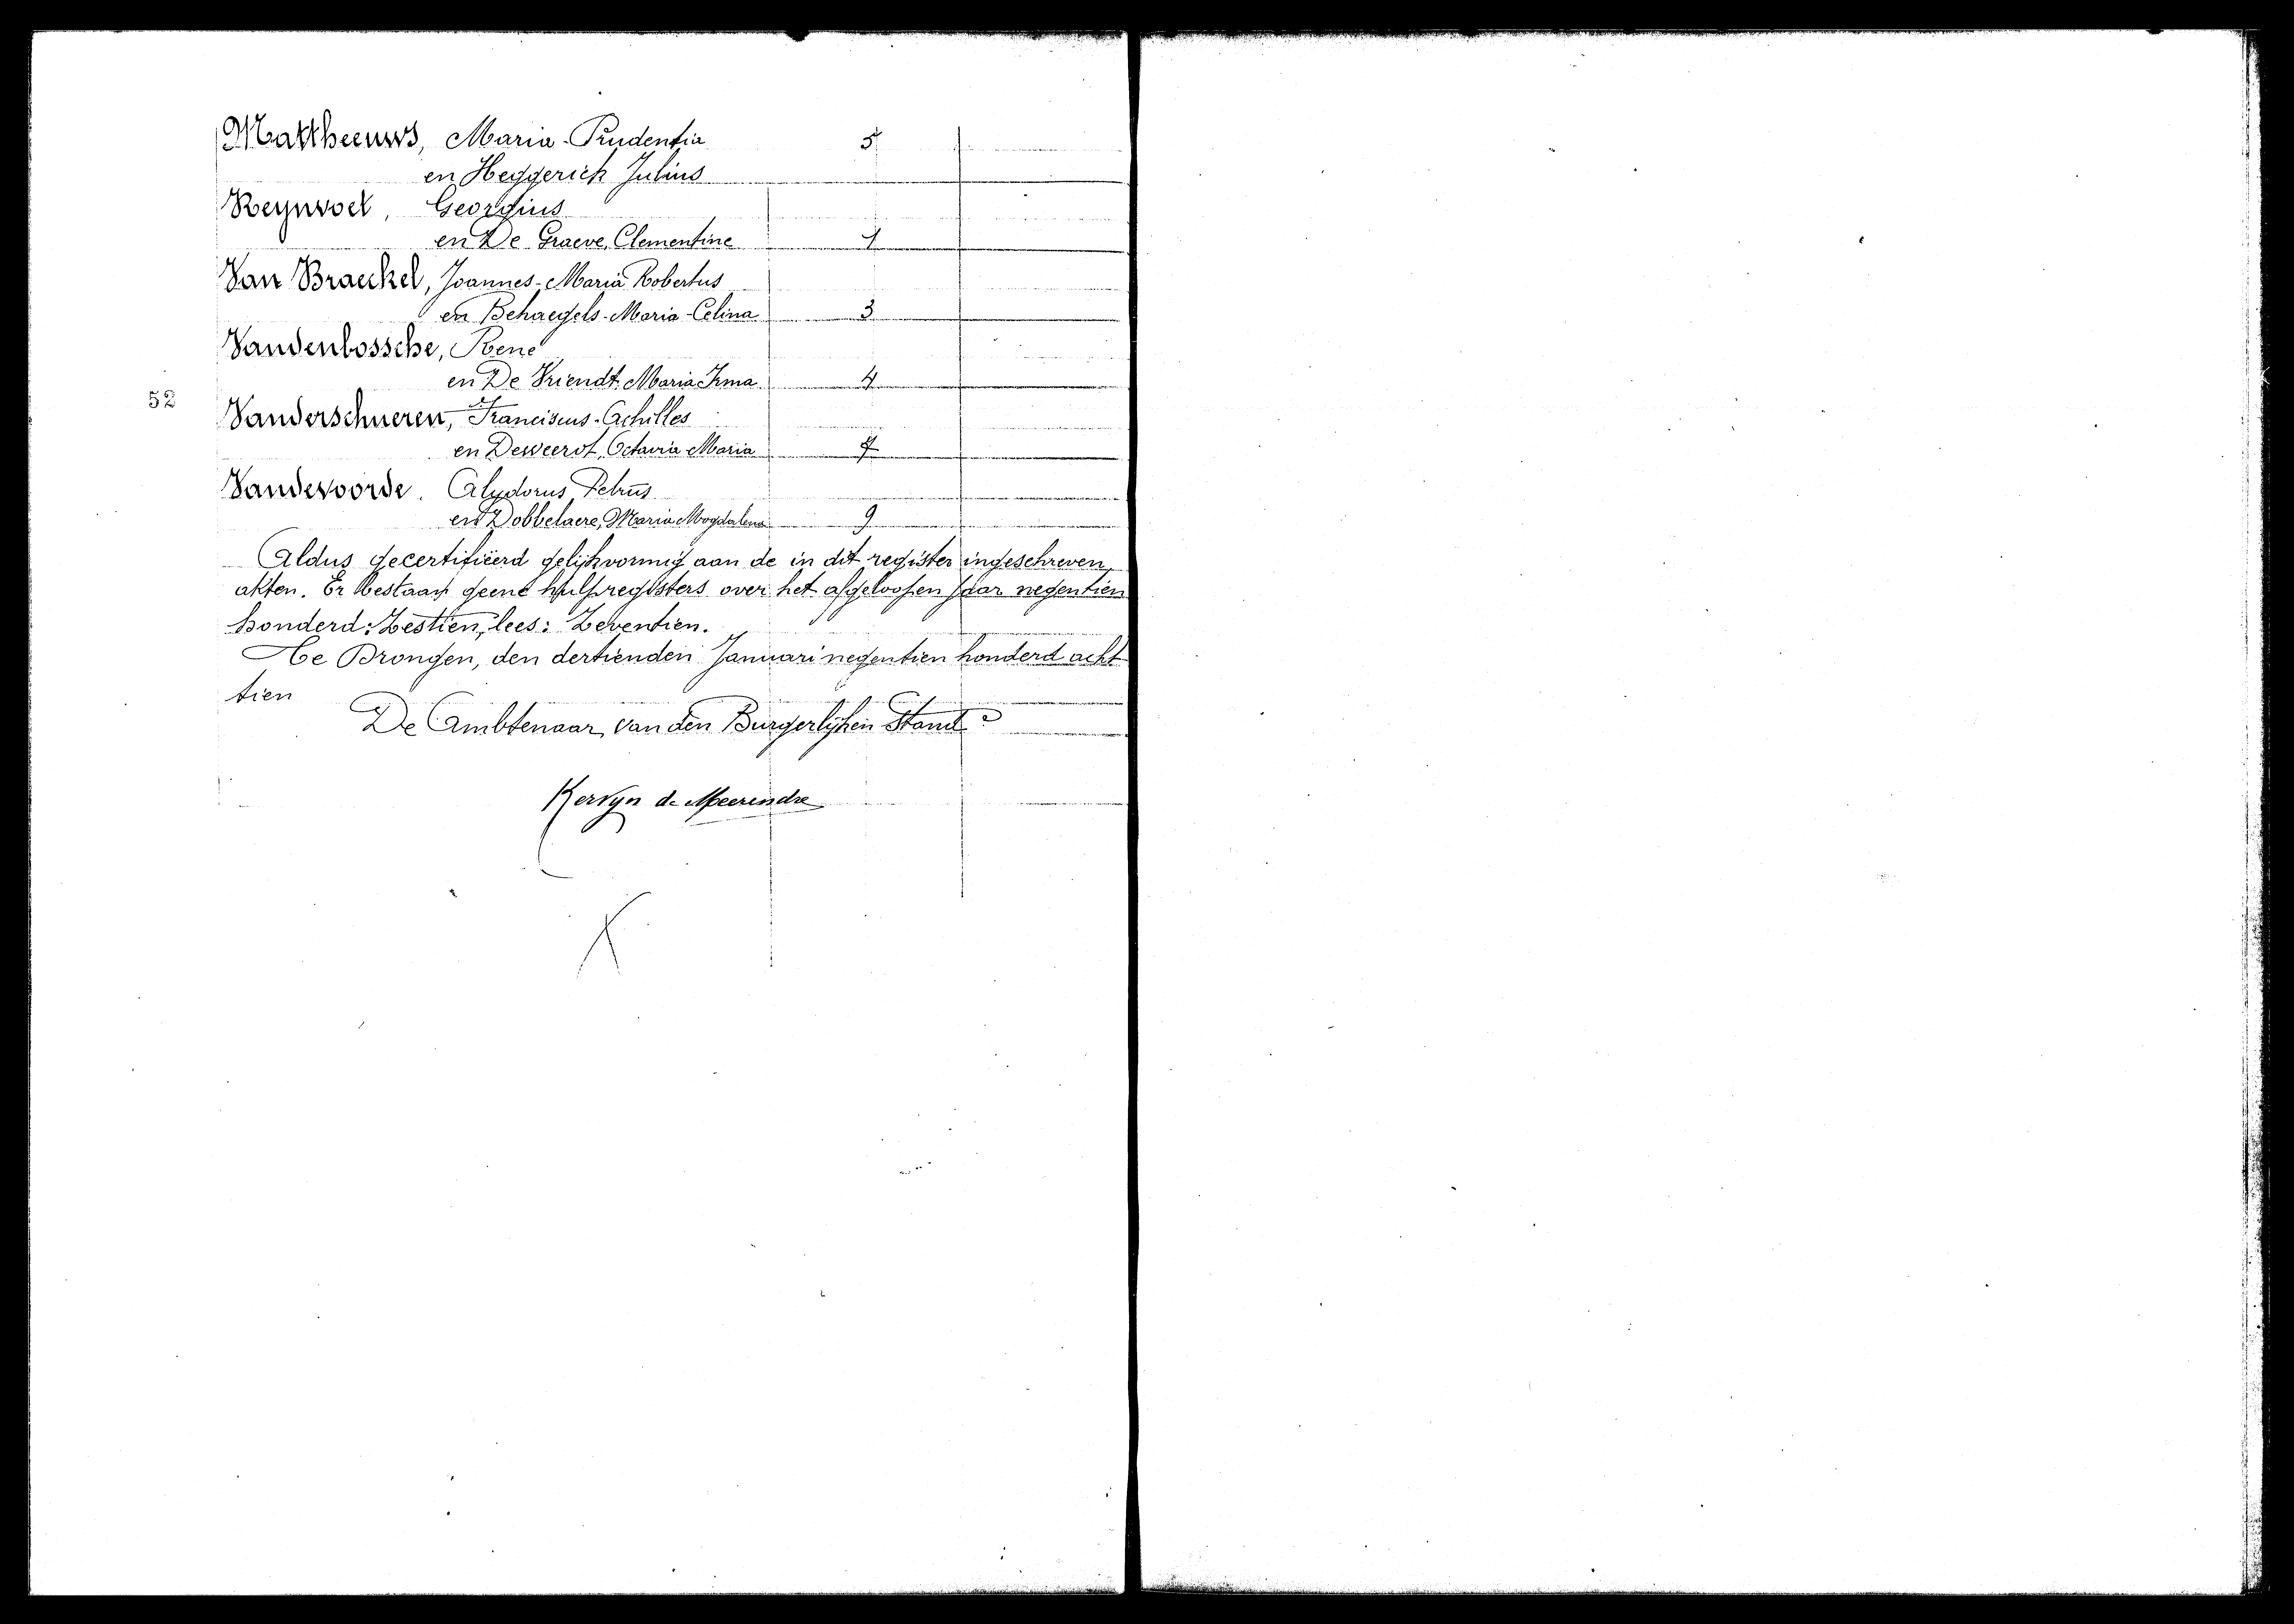 Mattheeuws, Maria-Prudentia 5
en Heggerick Julius
Reynvoet, Georgius
en De Graeve, Clementine 1
Van Braeckel, Joannes-Maria Robertus
en Behaegels-Maria-Celina 3
Vandenbossche, Rene
en De Vriendt Maria Irma 4
52
Vanderschueren, Franciscus-Achilles
en Deweerdt, Octavia Maria 7
Vandevoorde. Alydorus Petrus
en Dobbelaere, Maria Magdalena 9
Aldus gecertifiëerd gelijkvormig aan de in dit register ingeschreven
akten. Er bestaan geene hulpregisters over het afgeloopen jaar negentien
honderd: Zestien, lees: Zeventien.
Te Drongen, den dertienden Januari negentien honderd acht
tien
De Ambtenaar van den Burgerlijken Stand
Kervyn de Meerendre